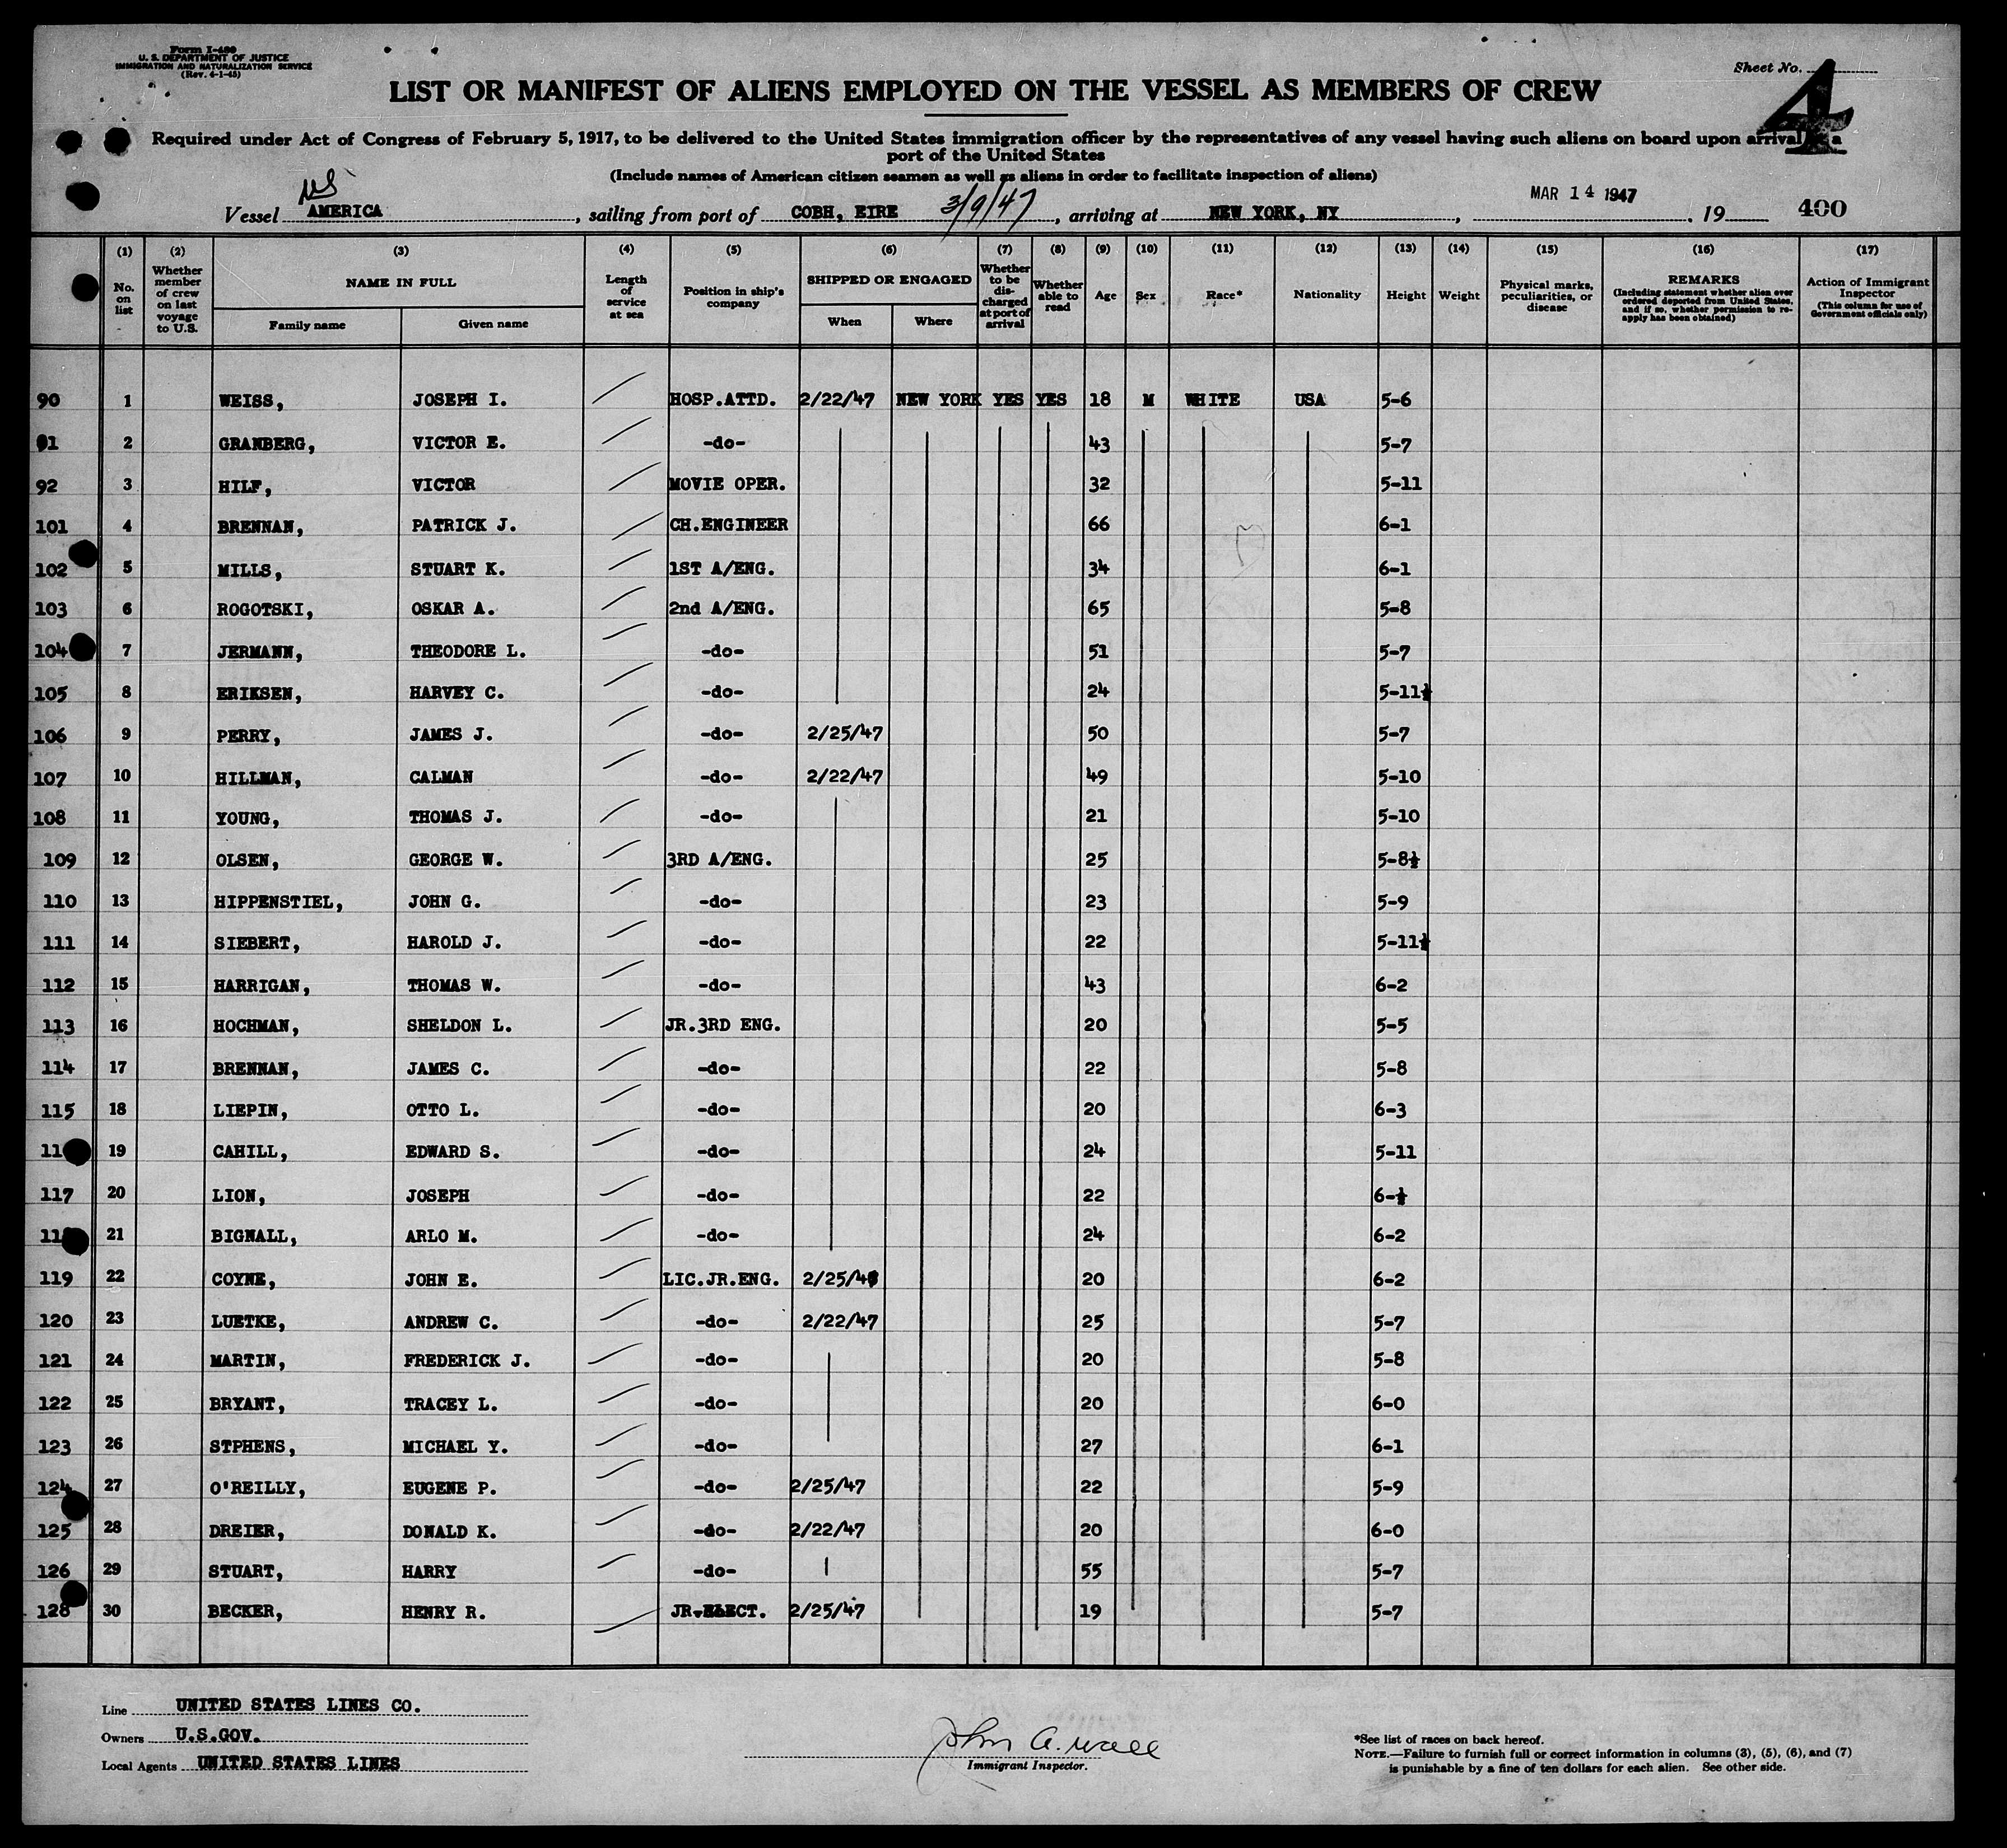 Form I-480
U. S. DEPARTMENT OF JUSTICE
IMMIGRATION AND NATURALIZATION SERVICE
(Rev. 4-1-45)
Sheet No. 4
LIST OR MANIFEST OF ALIENS EMPLOYED ON THE VESSEL AS MEMBERS OF CREW
Required under Act of Congress of February 5, 1917, to be delivered to the United States immigration officer by the representatives of any vessel having such aliens on board upon arrival a
port of the United States
(Include names of American citizen seamen as well as aliens in order to facilitate inspection of aliens)
Vessel US AMERICA, sailing from port of COBH, EIRE 3/9/47, arriving at NEW YORK, NY, MAR 14 1947, 19 400
(1) (2) (3) (4) (5) (6) (7) (8) (9) (10) (11) (12) (13) (14) (15) (16) (17)
No. on list Whether member of crew on last voyage to U.S. NAME IN FULL Family name Given name Length of service at sea Position in ship's company SHIPPED OR ENGAGED When Where Whether to be discharged at port of arrival Whether able to read Age Sex Race* Nationality Height Weight Physical marks, peculiarities, or disease REMARKS (Including statement whether alien ever ordered deported from United States, and if so, whether permission to re-apply has been obtained) Action of Immigrant Inspector (This column for use of Government officials only)
90 1 WEISS, JOSEPH I. HOSP.ATTD. 2/22/47 NEW YORK YES YES 18 M WHITE USA 5-6
91 2 GRANBERG, VICTOR E. -do- 43 5-7
92 3 HILF, VICTOR MOVIE OPER. 32 5-11
101 4 BRENNAN, PATRICK J. CH.ENGINEER 66 6-1
102 5 MILLS, STUART K. 1ST A/ENG. 34 6-1
103 6 ROGOTSKI, OSKAR A. 2nd A/ENG. 65 5-8
104 7 JERMANN, THEODORE L. -do- 51 5-7
105 8 ERIKSEN, HARVEY C. -do- 24 5-11½
106 9 PERRY, JAMES J. -do- 2/25/47 50 5-7
107 10 HILLMAN, CALMAN -do- 2/22/47 49 5-10
108 11 YOUNG, THOMAS J. -do- 21 5-10
109 12 OLSEN, GEORGE W. 3RD A/ENG. 25 5-8½
110 13 HIPPENSTIEL, JOHN G. -do- 23 5-9
111 14 SIEBERT, HAROLD J. -do- 22 5-11½
112 15 HARRIGAN, THOMAS W. -do- 43 6-2
113 16 HOCHMAN, SHELDON L. JR.3RD ENG. 20 5-5
114 17 BRENNAN, JAMES C. -do- 22 5-8
115 18 LIEPIN, OTTO L. -do- 20 6-3
11 19 CAHILL, EDWARD S. -do- 24 5-11
117 20 LION, JOSEPH -do- 22 6-½
11 21 BIGNALL, ARLO M. -do- 24 6-2
119 22 COYNE, JOHN E. LIC.JR.ENG. 2/25/4 20 6-2
120 23 LUETKE, ANDREW C. -do- 2/22/47 25 5-7
121 24 MARTIN, FREDERICK J. -do- 20 5-8
122 25 BRYANT, TRACEY L. -do- 20 6-0
123 26 STPHENS, MICHAEL Y. -do- 27 6-1
124 27 O'REILLY, EUGENE P. -do- 2/25/47 22 5-9
125 28 DREIER, DONALD K. -do- 2/22/47 20 6-0
126 29 STUART, HARRY -do- 55 5-7
128 30 BECKER, HENRY R. JR.ELECT. 2/25/47 19 5-7
Line UNITED STATES LINES CO.
Owners U.S.GOV.
Local Agents UNITED STATES LINES
John A. Wall
Immigrant Inspector.
*See list of races on back hereof.
NOTE.—Failure to furnish full or correct information in columns (3), (5), (6), and (7)
is punishable by a fine of ten dollars for each alien. See other side.